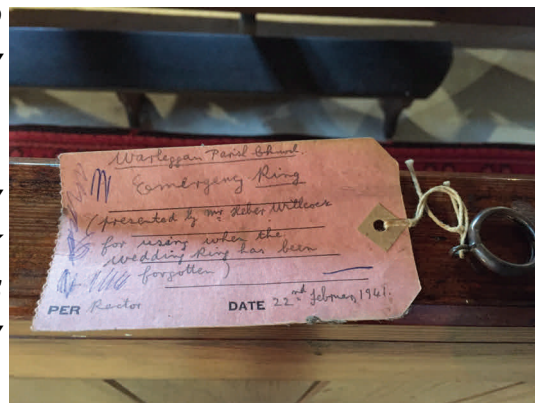 Warleggan Parish Church.
Emergency Ring
(presented by Mr Heber Willcock
for using when the
wedding ring has been
forgotten)
PER Rector DATE 22nd February, 1941.